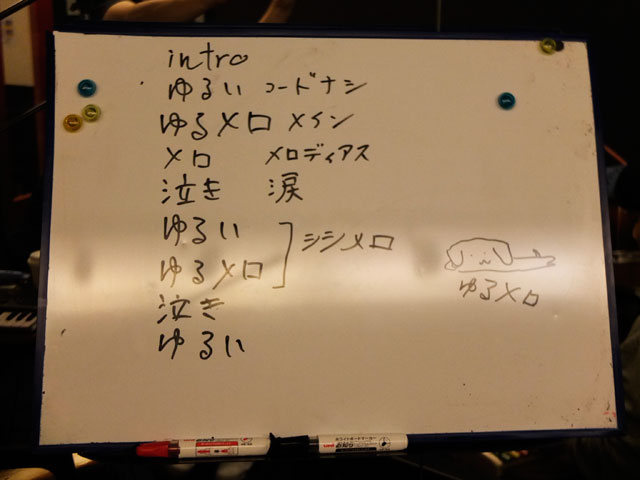 intro
ゆるい コードナシ
ゆるメロ メイン
メロ メロディアス
泣き 涙
ゆるい
ゆるメロ
シシメロ
泣き
ゆるい
ゆるメロ